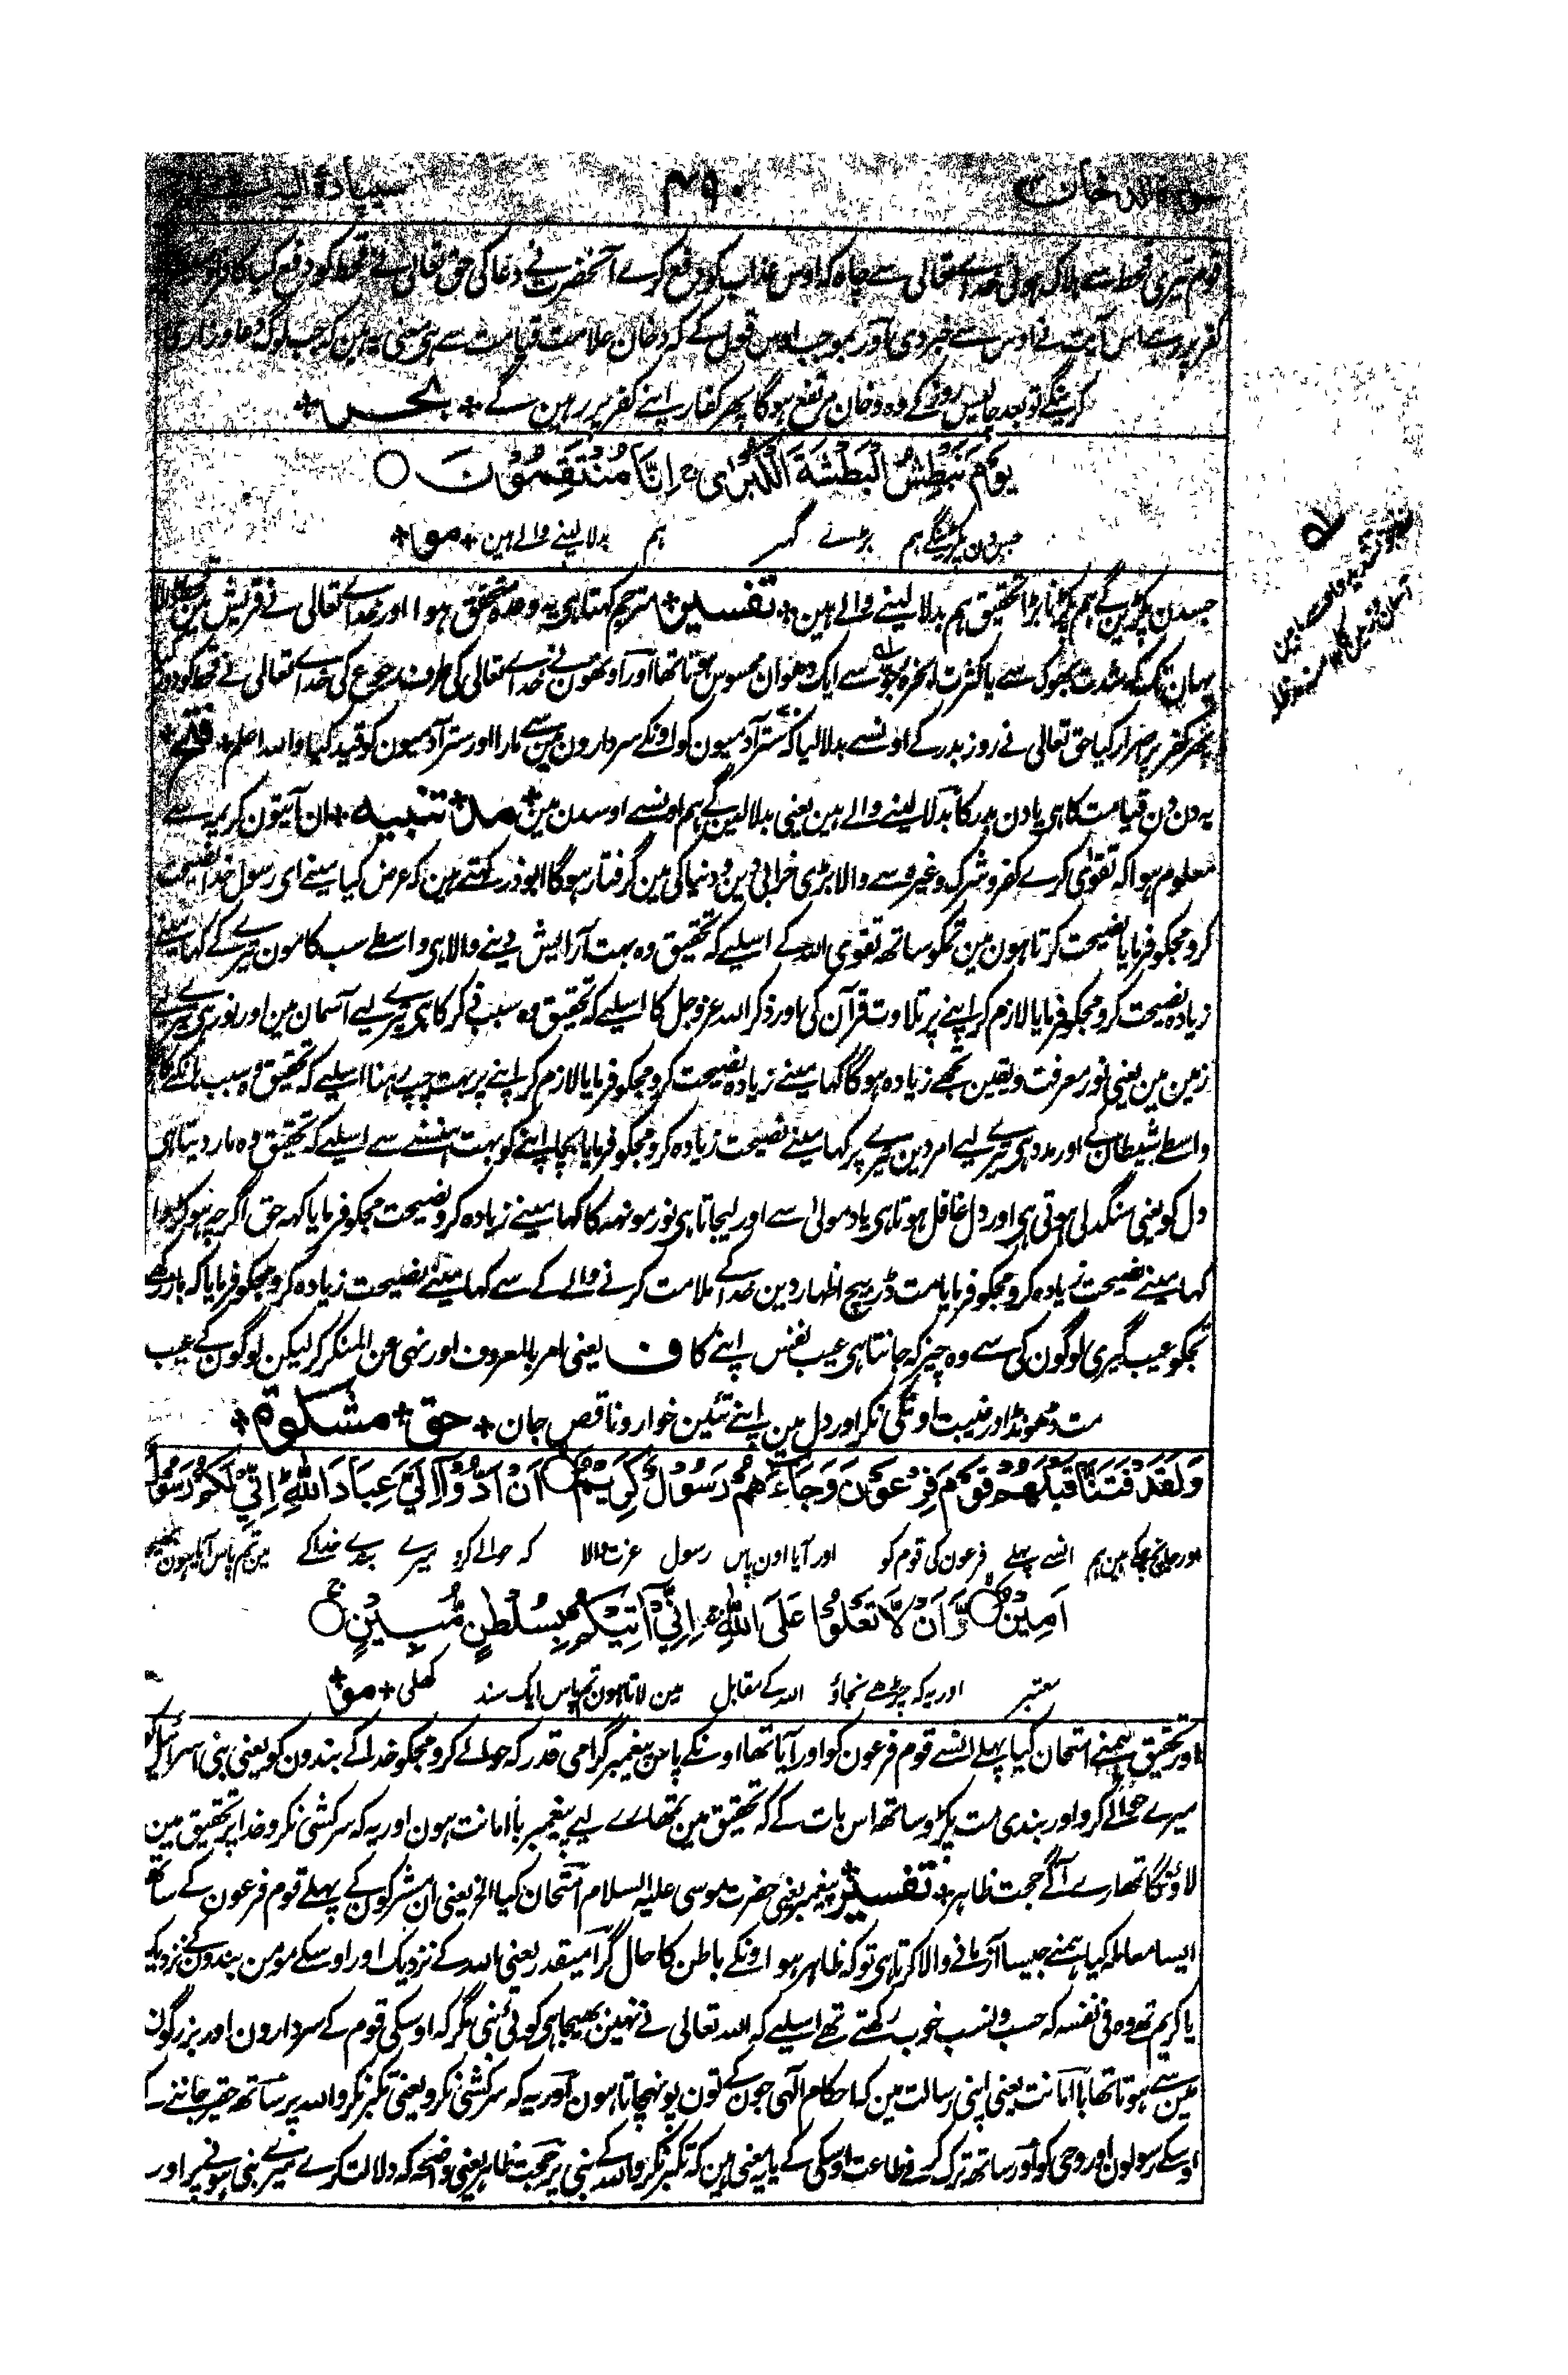 سورة الدخان ۴۹۰ سیپارۂ الیہ
قوم تیری قحط سے ہلاک ہوئی خداے تعالی سے چاہ کہ اوس عذاب کو دفع کرے آنحضرت نے دعا کی حق تعالی نے قحط کو دفع کیا
کفر پر رہے اس آیت نے اوس سے خبر دی اور بموجب اوس قول کے کہ دخان علامت قیامت سے ہی معنی یہ ہین کہ جب لوگ دعا و زاری
کرینگے تو بعد چالیس روز کے وہ دخان مرتفع ہوگا پھر کفار اپنے کفر پر رہین گے + بحر +
يَوْمَ نَبْطِشُ الْبَطْشَةَ الْكُبْرٰى ج اِنَّا مُنْتَقِمُوْنَ ○
جس دن پکڑینگے ہم بڑے گہر ہم بدلا لینے والے ہین + مو +
جسدن پکڑین گے ہم پکڑنا بڑا تحقیق ہم بدلا لینے والے ہین + تفسیر + مترجم کہتا ہی یہ وعدہ متحقق ہوا اور خداے تعالی نے قریش مین
یہان تک کہ شدت بھوک سے یا کثرت ابخرہ جو سے ایک دھوان محسوس ہوتا تھا اور اونھون نے خداے تعالی کی طرف رجوع کی خداے تعالی نے قحط کو دور
پھر کفر پر اصرار کیا حق تعالی نے روز بدر کے اونسے بدلا لیا کہ ستر آدمیون کو اونکے سردارون مین سے مارا اور ستر آدمیون کو قید کیا واللہ اعلم + فتح +
یہ دن دن قیامت کا ہی یا دن بدر کا بدلا لینے والے ہین یعنی بدلا لین گے ہم اونسے اوسدن مین + مد + تنبیہ + ان آیتون کریمہ سے
معلوم ہوا کہ تقوی کرے کفر و شرک وغیرہ سے والا بڑی خرابی دین و دنیا کی مین گرفتار ہوگا ابو ذر کہتے ہین کہ عرض کیا مینے ای رسول خدا نصیحت
کرو مجکو فرمایا نصیحت کرتا ہون مین تمکو ساتھ تقوی اللہ کے اسلیے کہ تحقیق وہ بہت آرایش دینے والا ہی واسطے سب کامون تیرے کے کہا مینے
زیادہ نصیحت کرو مجکو فرمایا لازم کر اپنے پر تلاوت قرآن کی اور ذکر اللہ عز وجل کا اسلیے کہ تحقیق وہ سبب ذکر کا ہی تیرے لیے آسمان مین اور نور ہی تیرے لیے
زمین مین یعنی نور معرفت و یقین تجھے زیادہ ہوگا کہا مینے زیادہ نصیحت کرو مجکو فرمایا لازم کر اپنے پر بہت چپ رہنا اسلیے کہ تحقیق وہ سبب ہانکنے کا
واسطے شیطان کے اور مدد ہی تیرے لیے امر دین تیرے پر کہا مینے نصیحت زیادہ کرو مجکو فرمایا بچا اپنے کو بہت ہنسنے سے اسلیے کہ تحقیق وہ مار دیتا ہی
دل کو یعنی سنگدلی ہوتی ہی اور دل غافل ہوتا ہی یاد مولیٰ سے اور لیجاتا ہی نور مونہہ کا کہا مینے زیادہ کرو نصیحت مجکو فرمایا کہہ حق اگرچہ ہو کڑوا
کہا مینے نصیحت زیادہ کرو مجکو فرمایا مت ڈر بیچ اظہار دین خدا کے ملامت کرنے والے کے سے کہا مینے نصیحت زیادہ کرو مجکو فرمایا کہ باز رکھے
تجکو عیب گیری لوگون کی سے وہ چیز کہ جانتا ہی عیب نفس اپنے کا ف یعنی امر بالمعروف اور نہی عن المنکر کر لیکن لوگون کے عیب
مت ڈھونڈ اور غیبت اونکی نکر اور دل مین اپنے تئین خوار و ناقص جان + حق + مشکوة +
وَلَقَدْ فَتَنَّا قَبْلَهُمْ قَوْمَ فِرْعَوْنَ وَجَآءَهُمْ رَسُوْلٌ كَرِيْمٌ ○ اَنْ اَدُّوْٓا اِلَيَّ عِبَادَ اللّٰهِ ط اِنِّيْ لَكُمْ رَسُوْلٌ
اور جانچ چکے ہین ہم انسے پہلے فرعون کی قوم کو اور آیا اون پاس رسول عزت والا کہ حوالے کرو میرے بندے خدا کے مین تم پاس آیا ہون بھیجا
اَمِيْنٌ ○ وَّاَنْ لَّا تَعْلُوْا عَلَى اللّٰهِ ج اِنِّيْٓ اٰتِيْكُمْ بِسُلْطٰنٍ مُّبِيْنٍ ○
معتبر اور یہ کہ چڑھے نجاؤ اللہ کے مقابل مین لاتا ہون تم پاس ایک سند کھلی + مو +
اور تحقیق ہمنے امتحان کیا پہلے انسے قوم فرعون کو اور آیا تھا اونکے پاس پیغمبر گرامی قدر کہ حوالے کرو مجکو خدا کے بندون کو یعنی بنی اسرائیل کو
میرے حوالے کرو اور بندی مت پکڑو ساتھ اس بات کے کہ تحقیق مین تمھارے لیے پیغمبر با امانت ہون اور یہ کہ سرکشی نکرو خدا پر تحقیق مین
لاؤنگا تمھارے آگے حجت ظاہر + تفسیر + پیغمبر یعنی حضرت موسی علیہ السلام امتحان کیا الخ یعنی ان مشرکون کے پہلے قوم فرعون کے ساتھ
ایسا معاملہ کیا ہمنے جیسا آزمانے والا کرتا ہی تو کہ ظاہر ہو اونکے باطن کا حال گرامیقدر یعنی اللہ کے نزدیک اور اوسکے مومن بندون کے نزدیک
یا کریم تھے وہ فی نفسہ کہ حسب و نسب خوب رکھتے تھے اسلیے کہ اللہ تعالی نے نہین بھیجا ہی کوئی نبی مگر کہ اوسکی قوم کے سردارون اور بزرگون
مین سے ہوتا تھا با امانت یعنی اپنی رسالت مین کہ احکام آلہی جون کے تون پونہچاتا ہون اور یہ کہ سرکشی نکرو یعنی تکبر نکرو اللہ پر ساتھ حقیر جاننے
اوسکے رسولون اور وحی کو اور ساتھ ترک کرنے طاعت اوسکی کے یا یہ معنی ہین کہ تکبر نکرو اللہ کے نبی پر حجت ظاہر یعنی واضحہ کہ دلالت کرے میرے نبی ہونے پر اور